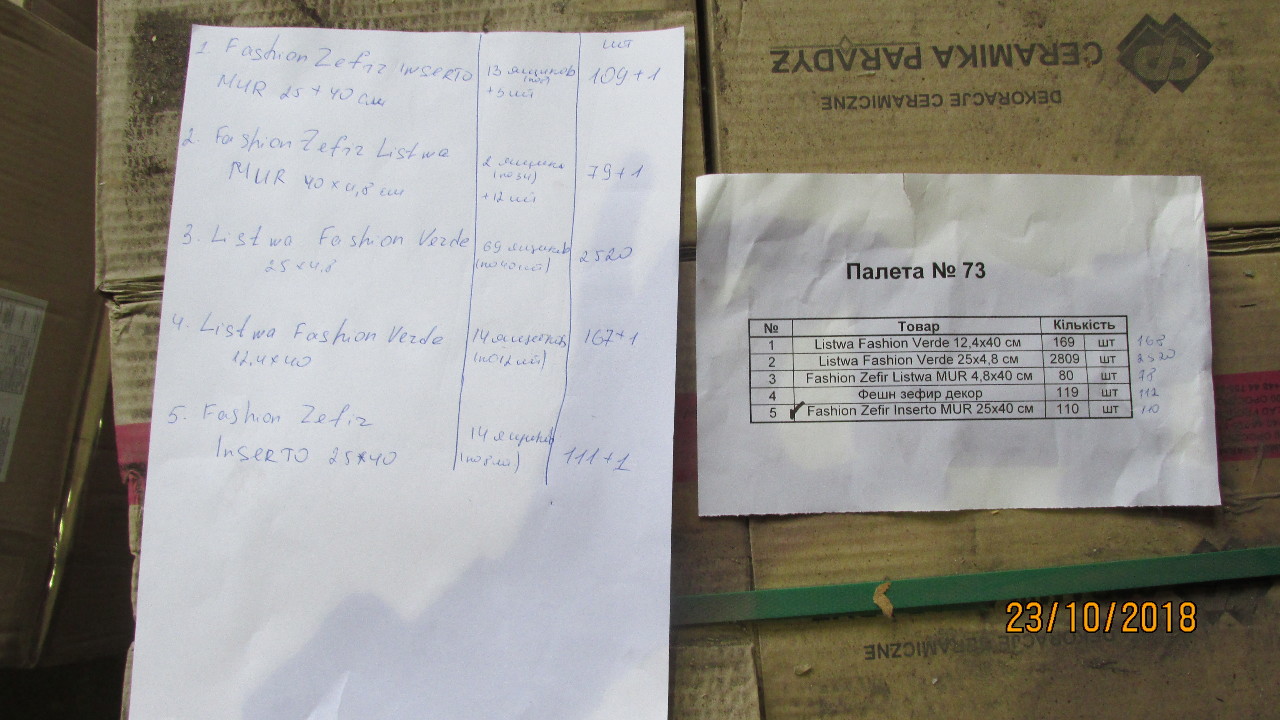 шт
1 Fashion Zefir INSERTO 13 ящиков 109+1
MUR 25 + 40 см +5 шт
2. Fashion Zefir Listwa
MUR 40 x 4,8 см 2 ящика 79+1
+12 шт
3. Listwa Fashion Verde 69 ящиков 2520
25 x 4,8 (по 40 шт)
4. Listwa Fashion Verde 14 ящиков 167+1
12,4 x 40 (по 12 шт)
5. Fashion Zefir
INSERTO 25x40 14 ящиков 111+1
CERAMIKA PARADYZ
DEKORACJE CERAMICZNE
Палета № 73
№ Товар Кількість
1 Listwa Fashion Verde 12,4x40 см 169 шт 168
2 Listwa Fashion Verde 25x4,8 см 2809 шт 2520
3 Fashion Zefir Listwa MUR 4,8x40 см 80 шт
4 Фешн зефир декор 119 шт 112
5 Fashion Zefir Inserto MUR 25x40 см 110 шт 110
23/10/2018
DEKORACJE CERAMICZNE